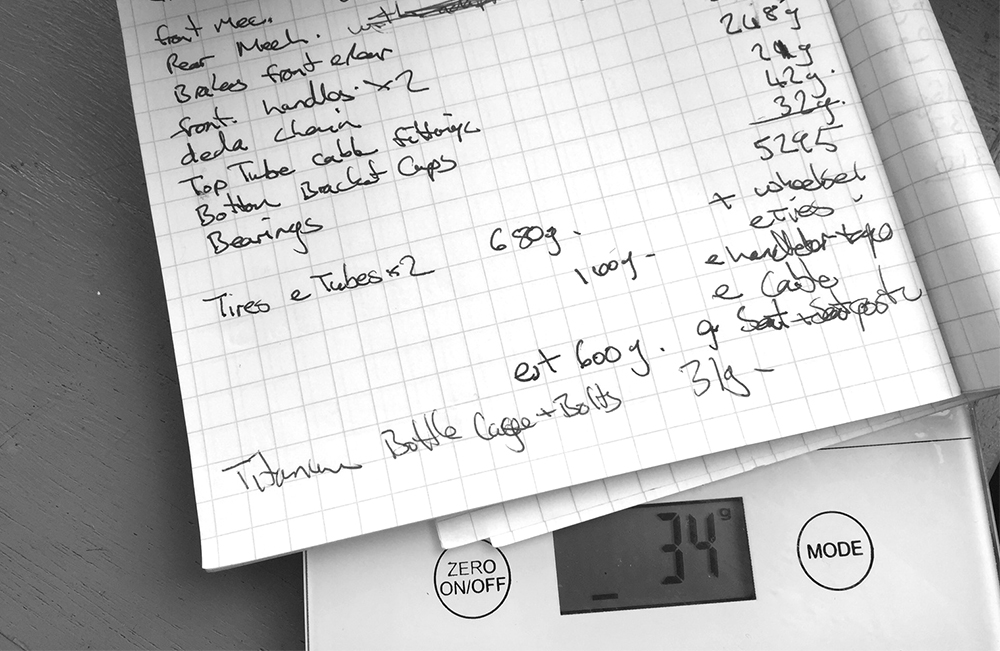 front Mec.
Rear Mech.
Brakes front & Rear
front. handles. x2
deda chain
248g
Top Tube cable fittings
Bottom Bracket Cups
42g.
Bearings
32g.
5295
Tires e Tubes x2 680g.
+ wheelset
e tires
160g-
e handlebar tape
e Cable
est 600g. Seat + Seatpost
Titanium Bottle Cage + Bolts 31g-
34 g
ZERO
ON/OFF
MODE